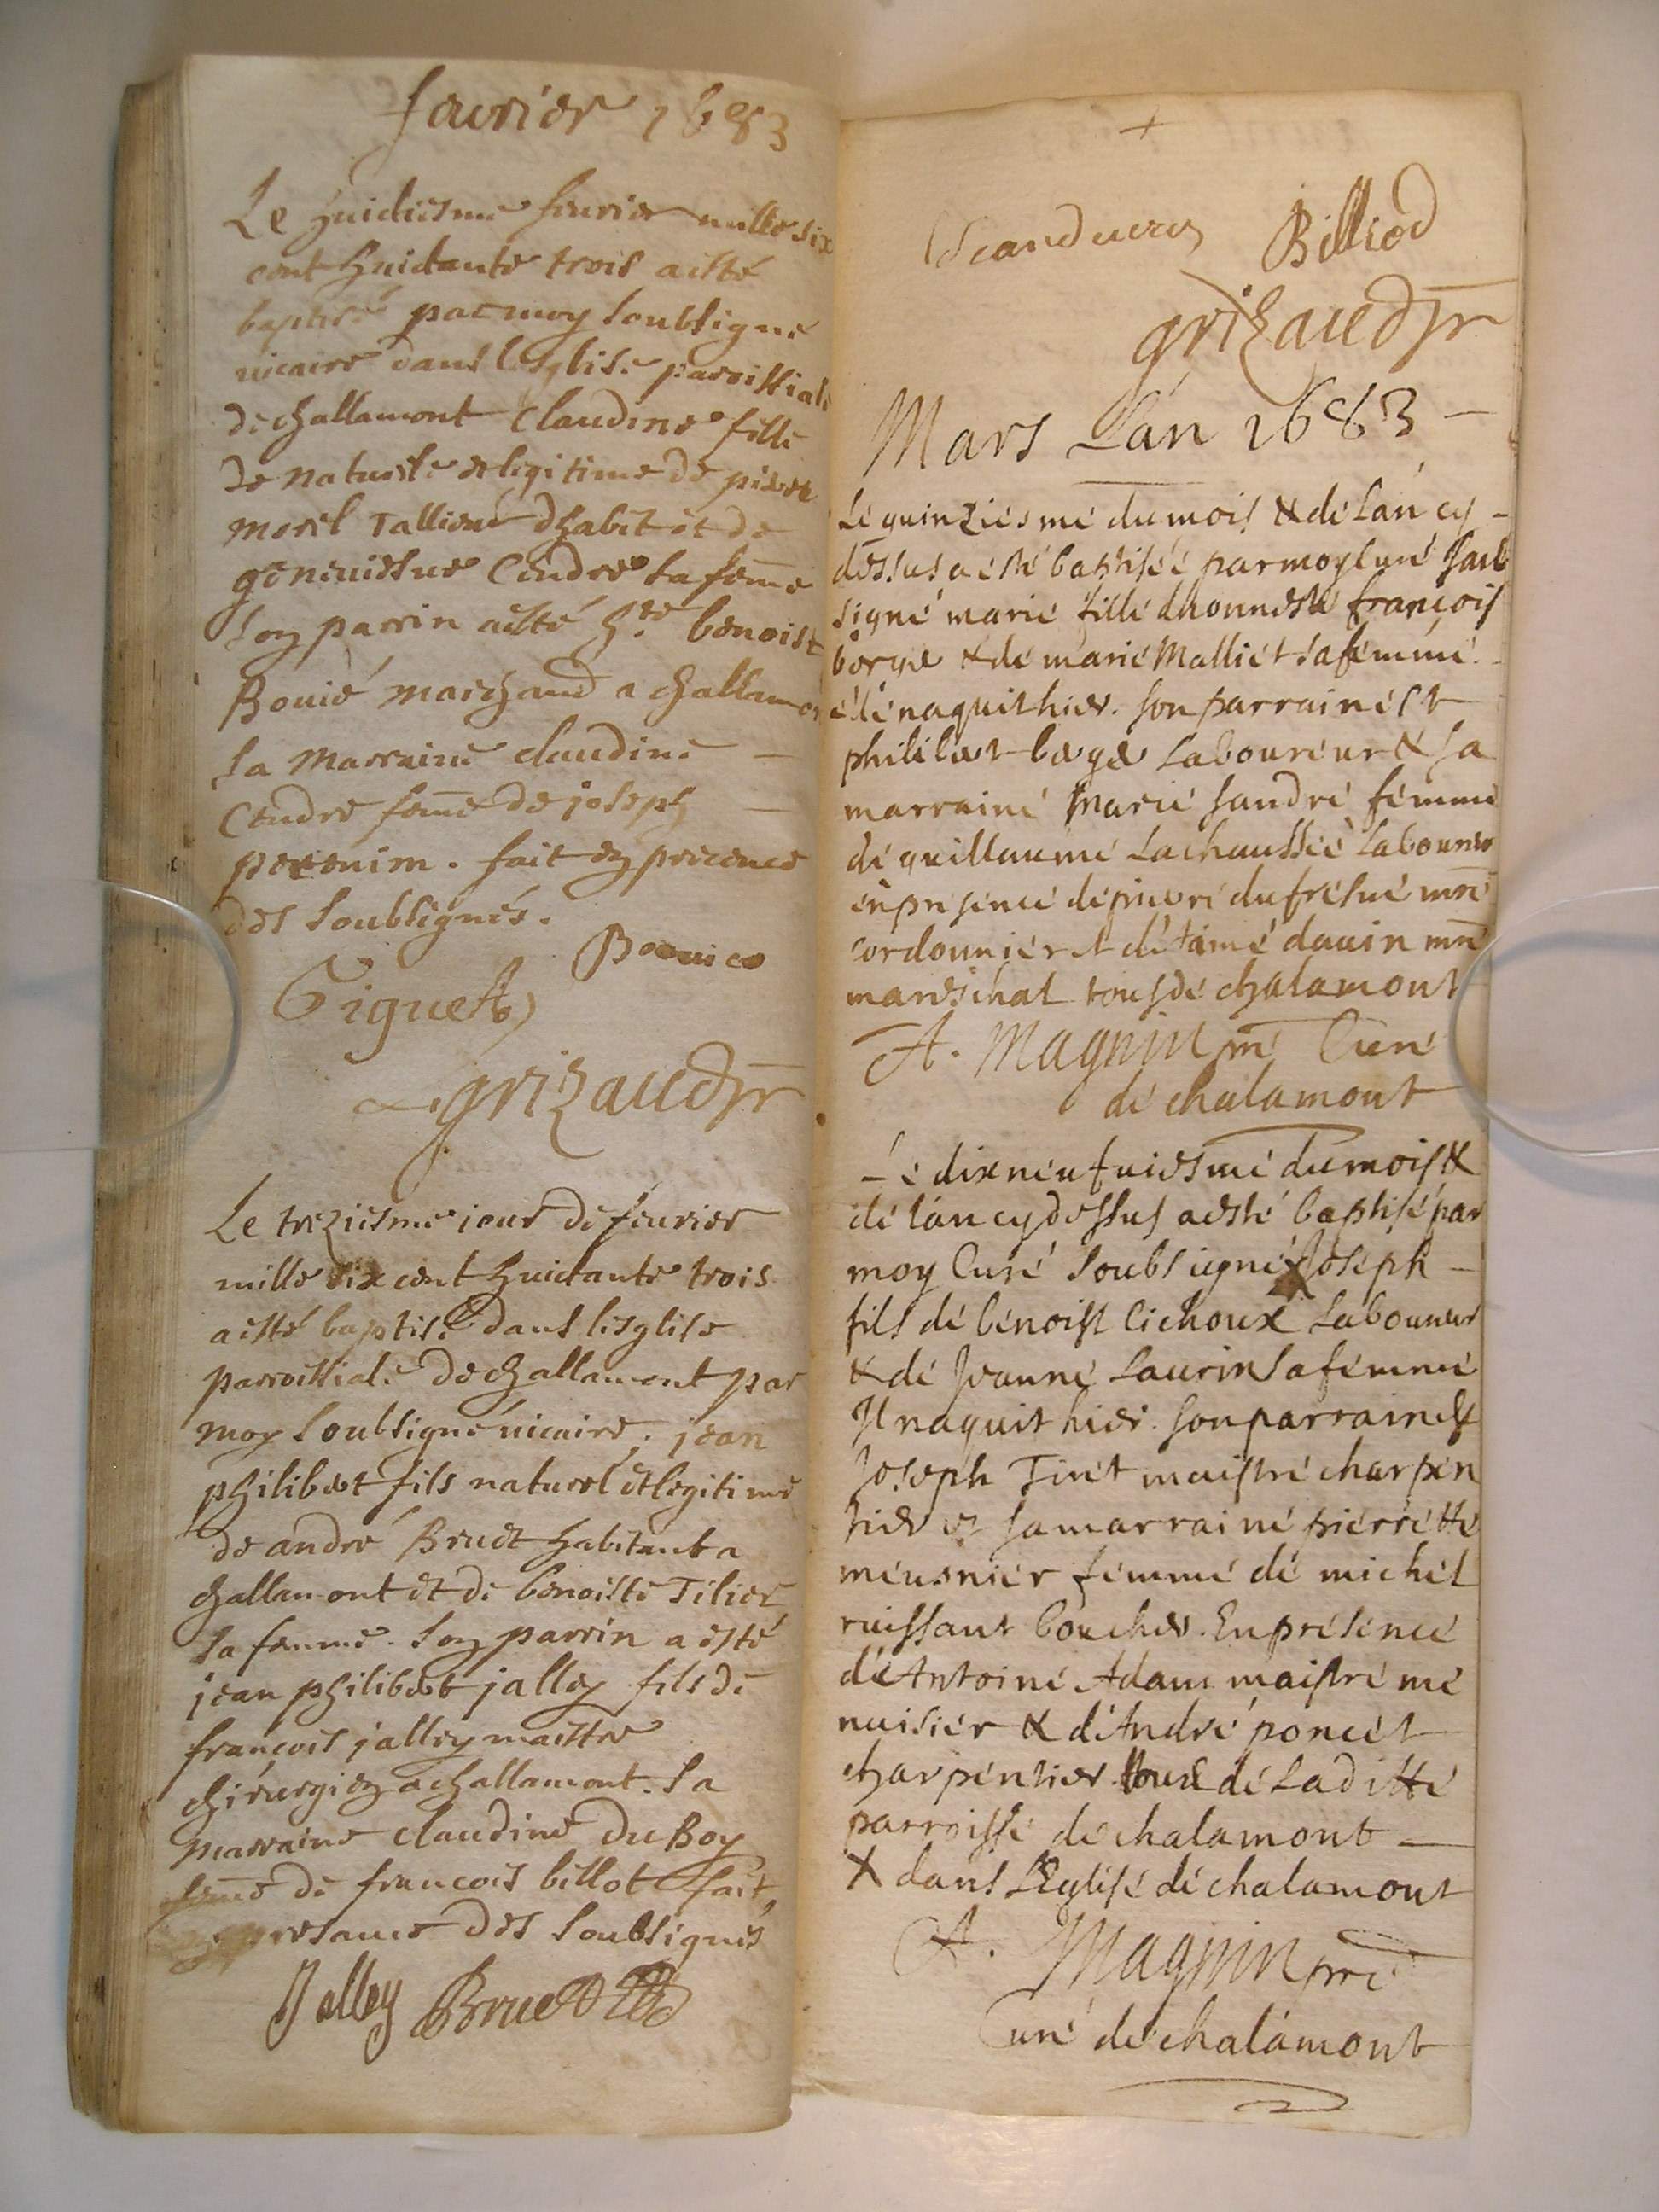 feurier 1683
Le huictiesme feurier mille six
cent huictante trois a esté
baptisé par moy soubsigné
uicaire dans lesglise paroissiale
de challamont Claudine fille
de naturele et legitime de pierre
morel Tallieur dhabit et de
geneuiefue Cendre sa feme
son parrin a esté hte benoist
Bouié marchand a challamon
la marraine claudine —
Cendre feme de joseph —
perenim. fait en presence
des soubsignés.
Bouuier
Giguet
grizaud
Le treziesme iour de feurier
mille six cent huictante trois
a esté baptisé dans lesglise
parroissiale de challamont par
moy soubsigné uicaire, jean
philibert fils naturel et legitime
de andré Bruet habitant a
challamont et de benoiste Tilier
sa femme. son parrin a esté
jean philibert jalley fils de
francois jalley maistre
chirurgien a challamont. la
marraine claudine Du Boy
feme de francois billot fait
presance des soubsignés
Jalley Bruet
+
Billiod
grizaud
Mars Lan 1683 —
Le quinziesme du mois & de Lan cy –
dessus a esté baptiséé par moy curé soub
signé marie fille dhonneste françois
berge & de marie Malliet sa femme.
éllé naquit hier. son parrain est
philibert berge Laboureur & sa
marrainé Marie sandré femme
de guillaume Lachausséé Laboureur
en presence de pierre dufresne mre
cordonnier et d'étiéné dauin mre
mareschal tous de chalamont
A. Magnin pre Curé
de chalamont
Le dixneufuiesme du mois &
de lan cy dessus a esté baptisé par
moy Curé soubsigné X Joseph –
fils de benoist Cichoux Laboureur
& de Jeanne Laurin sa femme
Il naquit hier. son parrain est
Joseph Tiret maistre charpen
tier et sa marraine pierrette
meusnier femme de michel
ruissant boucher. En presence
de Antoine Adam maistre me
nuisier & d'André poncet
charpentier tous de Laditte
parroisse de chalamont —
X dans l'Eglise de chalamont
A. Magnin pre
Curé de chalamont